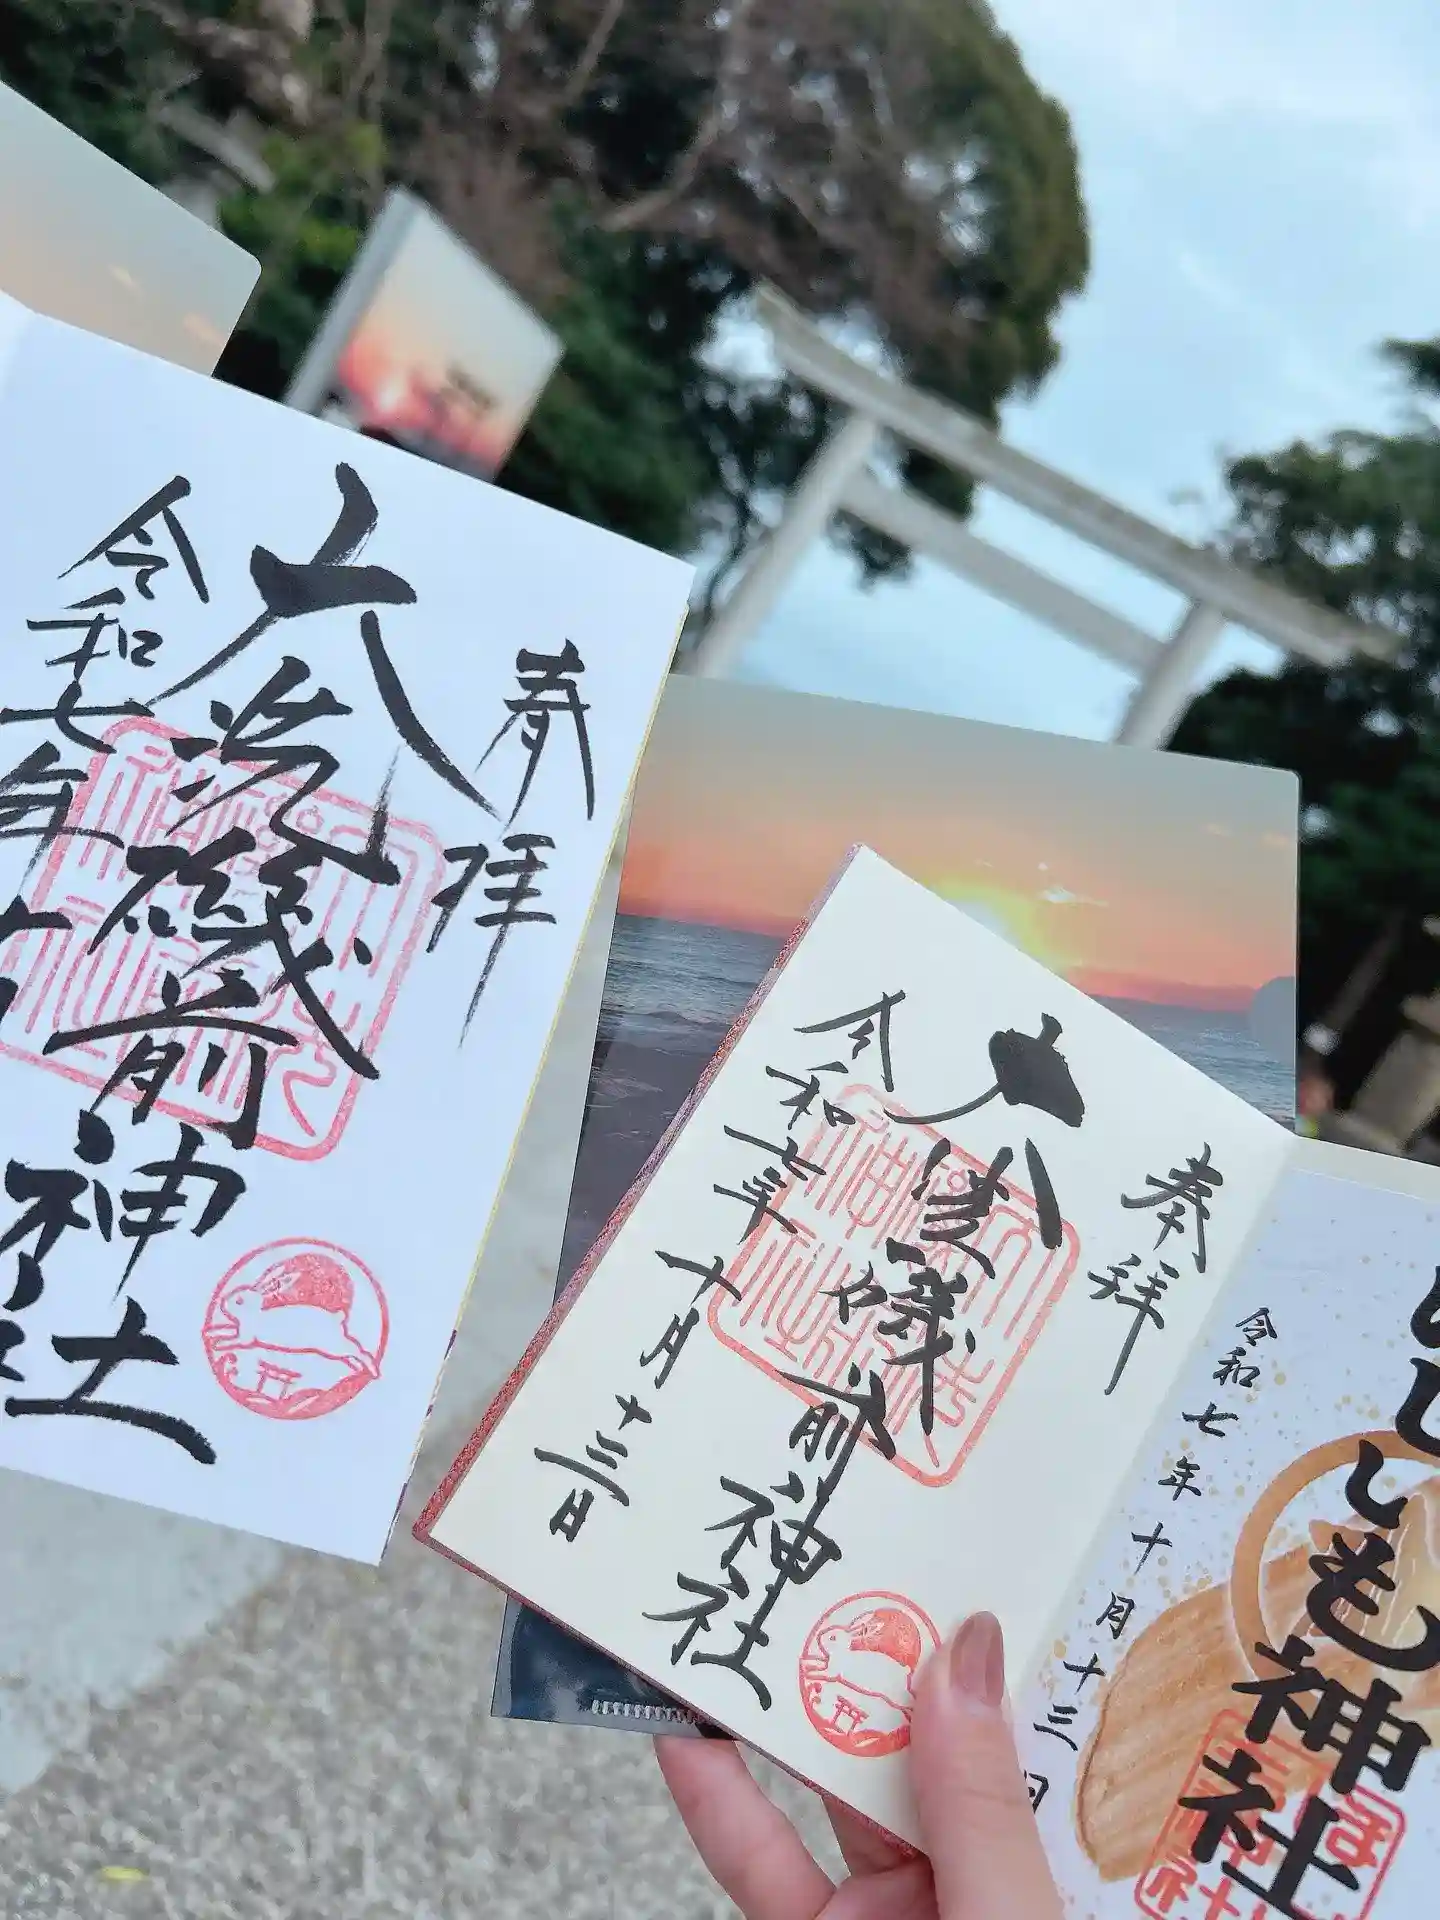 奉拝
大洗磯前神社
令和七年十
奉拝
大洗磯前神社
令和七年十月十三日
ほしいも神社
令和七年十月十三日